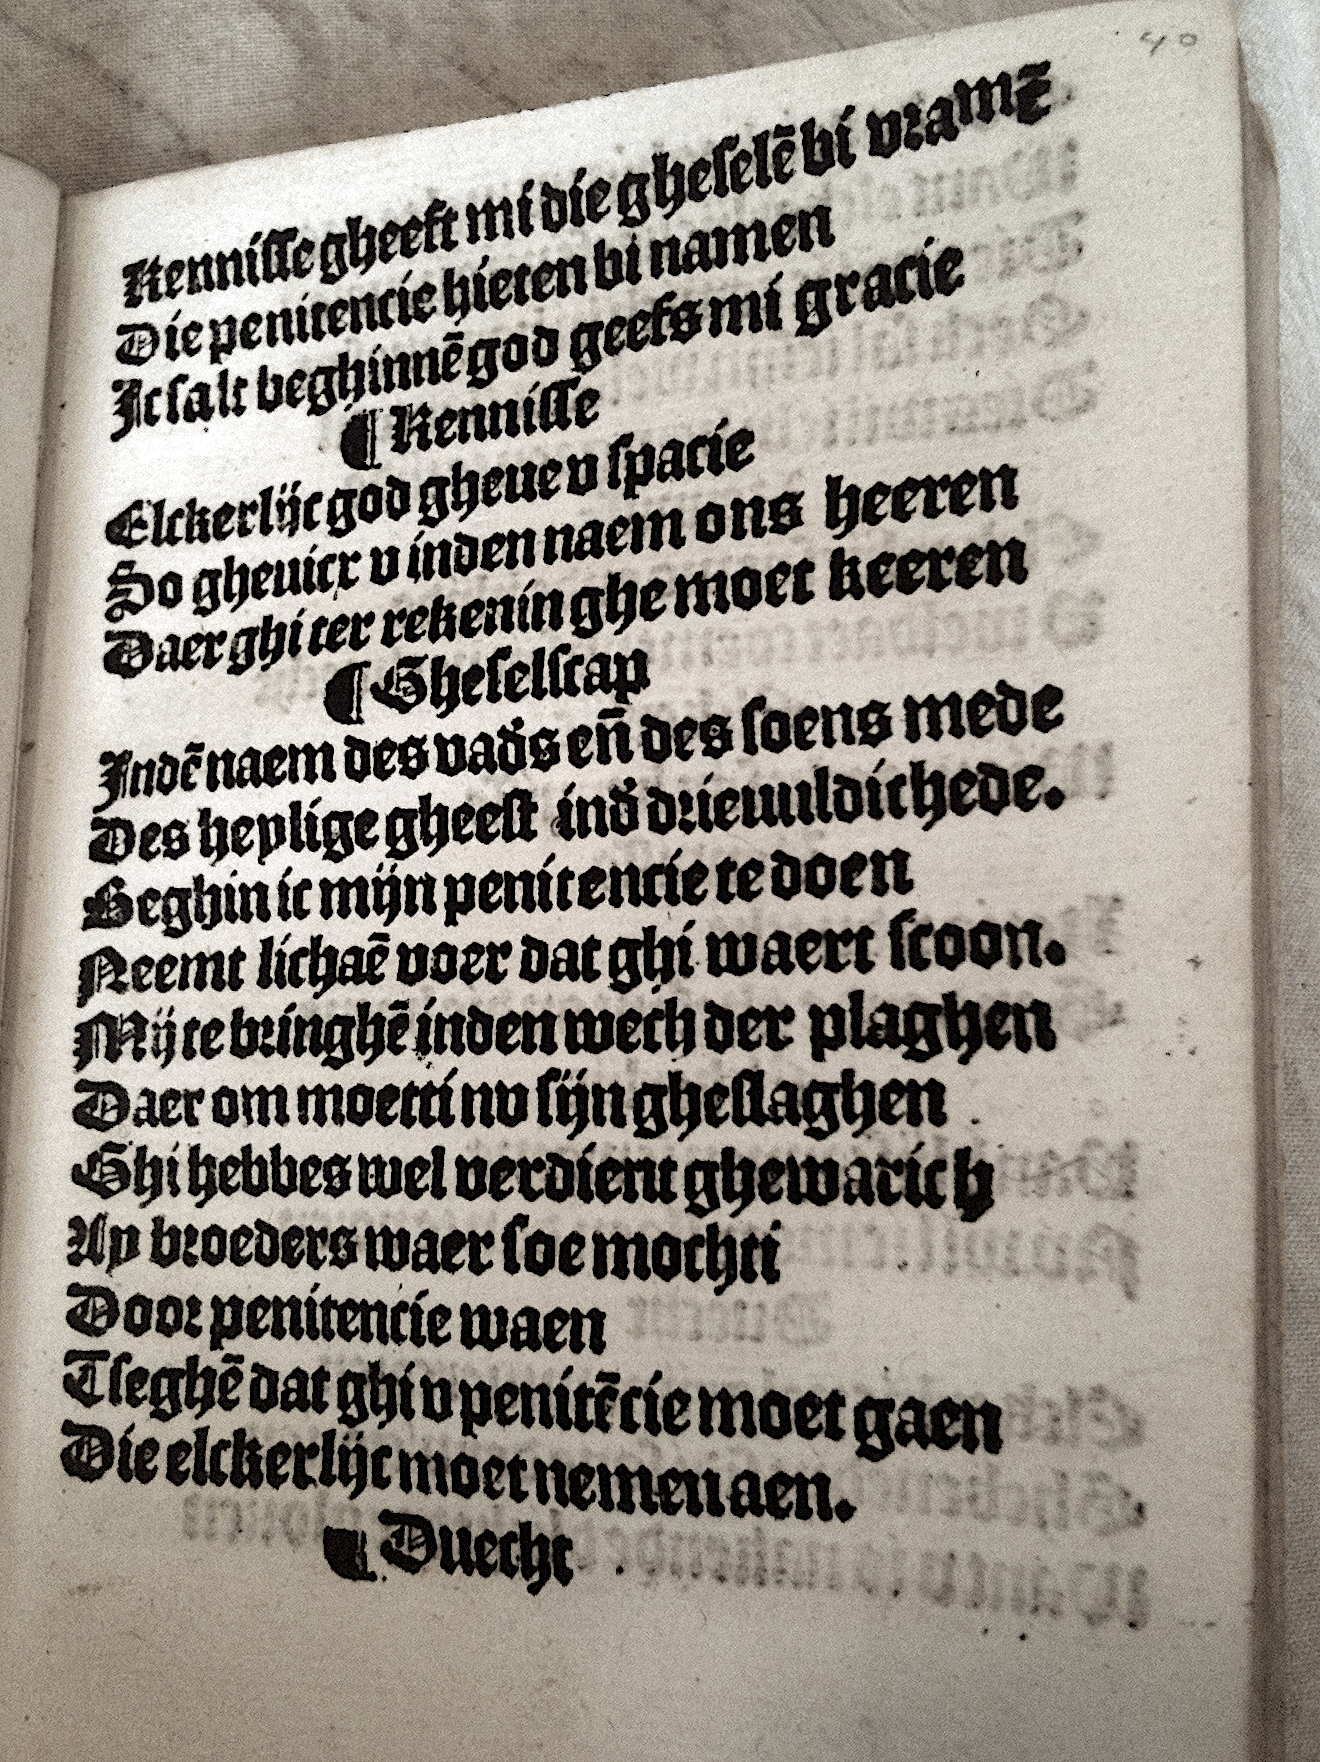 40
Kennisse gheeft mi die gheselē bi vramē
Die penitencie hieten bi namen
Ic salt beghinnē god geefs mi gracie
¶ Kennisse
Elckerlijc god gheue v spacie
So gheuict v inden naem ons heeren
Daer ghi ter rekeninghe moet keeren
¶ Gheselscap
Indē naem des vad̕s en̄ des soens mede
Des heylige gheest ind̕ drieuuldichede.
Beghin ic mijn penitencie te doen
Neemt lichaē voer dat ghi waert scoon.
Mij te bringhē inden wech der plaghen
Daer om moetti nv sijn gheslaghen
Ghi hebbes wel verdient ghewarich
Ay broeders waer soe mochti
Door penitencie waen
Tseghē dat ghi v penitēcie moet gaen
Die elckerlijc moet nemen aen.
¶ Duecht